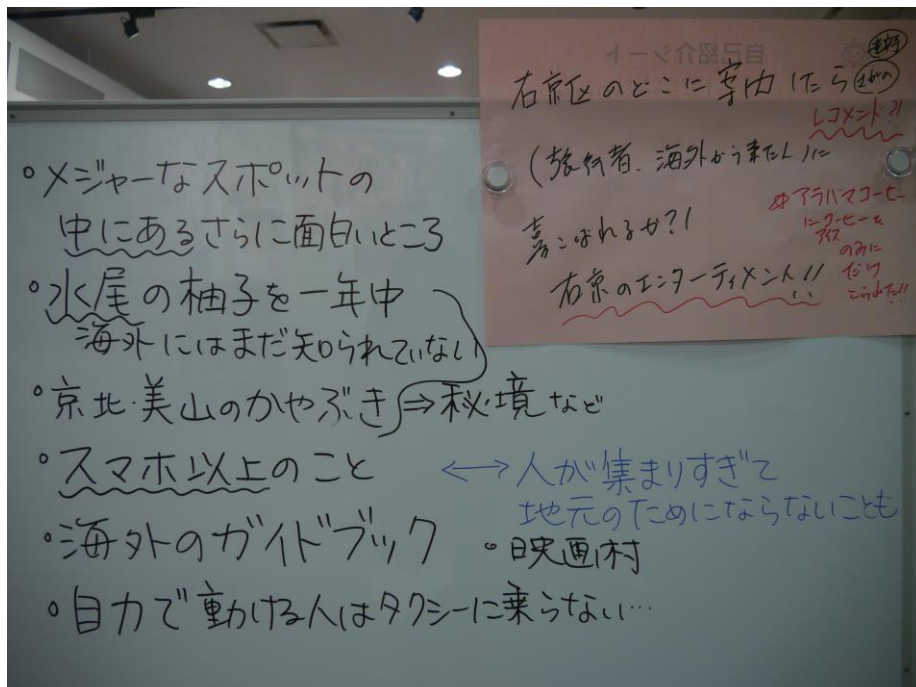 自己紹介シート
右京区のどこに案内したら
レコメンド?!
(旅行者、海外から来た人)に
喜こばれるか?!
右京のエンターティメント!!
アラバマコーヒー
にコーヒーを
アイス
のみに
だけ
こられた!!
・メジャーなスポットの
中にあるさらに面白いところ
・水尾の柚子を一年中
海外にはまだ知られていない
・京北・美山のかやぶき⇒秘境など
・スマホ以上のこと
↔人が集まりすぎて
地元のためにならないことも
・海外のガイドブック
・映画村
・自力で動ける人はタクシーに乗らない…